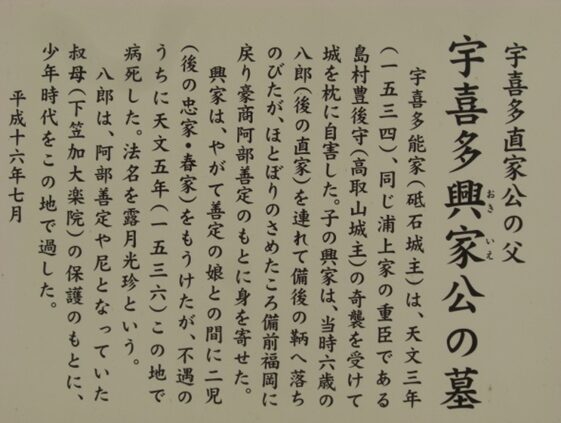 宇喜多直家公の父
宇喜多興家公の墓
おき いえ
宇喜多能家(砥石城主)は、天文三年
(一五三四)、同じ浦上家の重臣である
島村豊後守(高取山城主)の奇襲を受けて
城を枕に自害した。子の興家は、当時六歳の
八郎(後の直家)を連れて備後の鞆へ落ち
のびたが、ほとぼりのさめたころ備前福岡に
戻り豪商阿部善定のもとに身を寄せた。
興家は、やがて善定の娘との間に二児
(後の忠家・春家)をもうけたが、不遇の
うちに天文五年(一五三六)この地で
病死した。法名を露月光珍という。
八郎は、阿部善定や尼となっていた
叔母(下笠加大楽院)の保護のもとに、
少年時代をこの地で過した。
平成十六年七月